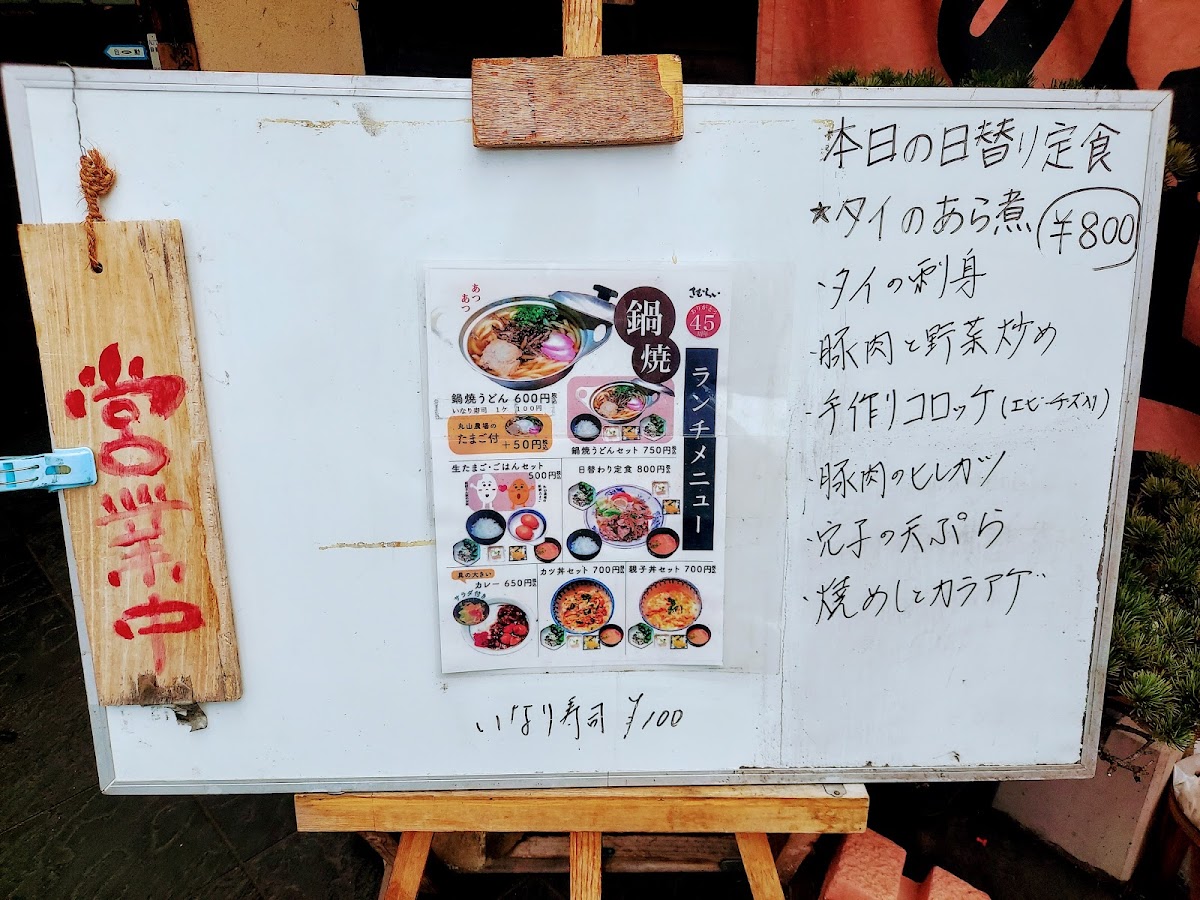 自動
営業中
あつあつ
鍋焼
さむらい
45
ランチメニュー
鍋焼うどん 600円
いなり寿司 1ケ 100円
丸山農場の
たまご付 +50円
鍋焼うどんセット 750円
生たまご・ごはんセット
500円
日替わり定食 800円
具の大きい
カレー 650円
サラダ付き
カツ丼セット 700円
親子丼セット 700円
いなり寿司 ¥100
本日の日替り定食
★タイのあら煮 ¥800
・タイの刺身
・豚肉と野菜炒め
・手作りコロッケ(エビーチーズ入り)
・豚肉のヒレカツ
・穴子の天ぷら
・焼めしとカラアゲ